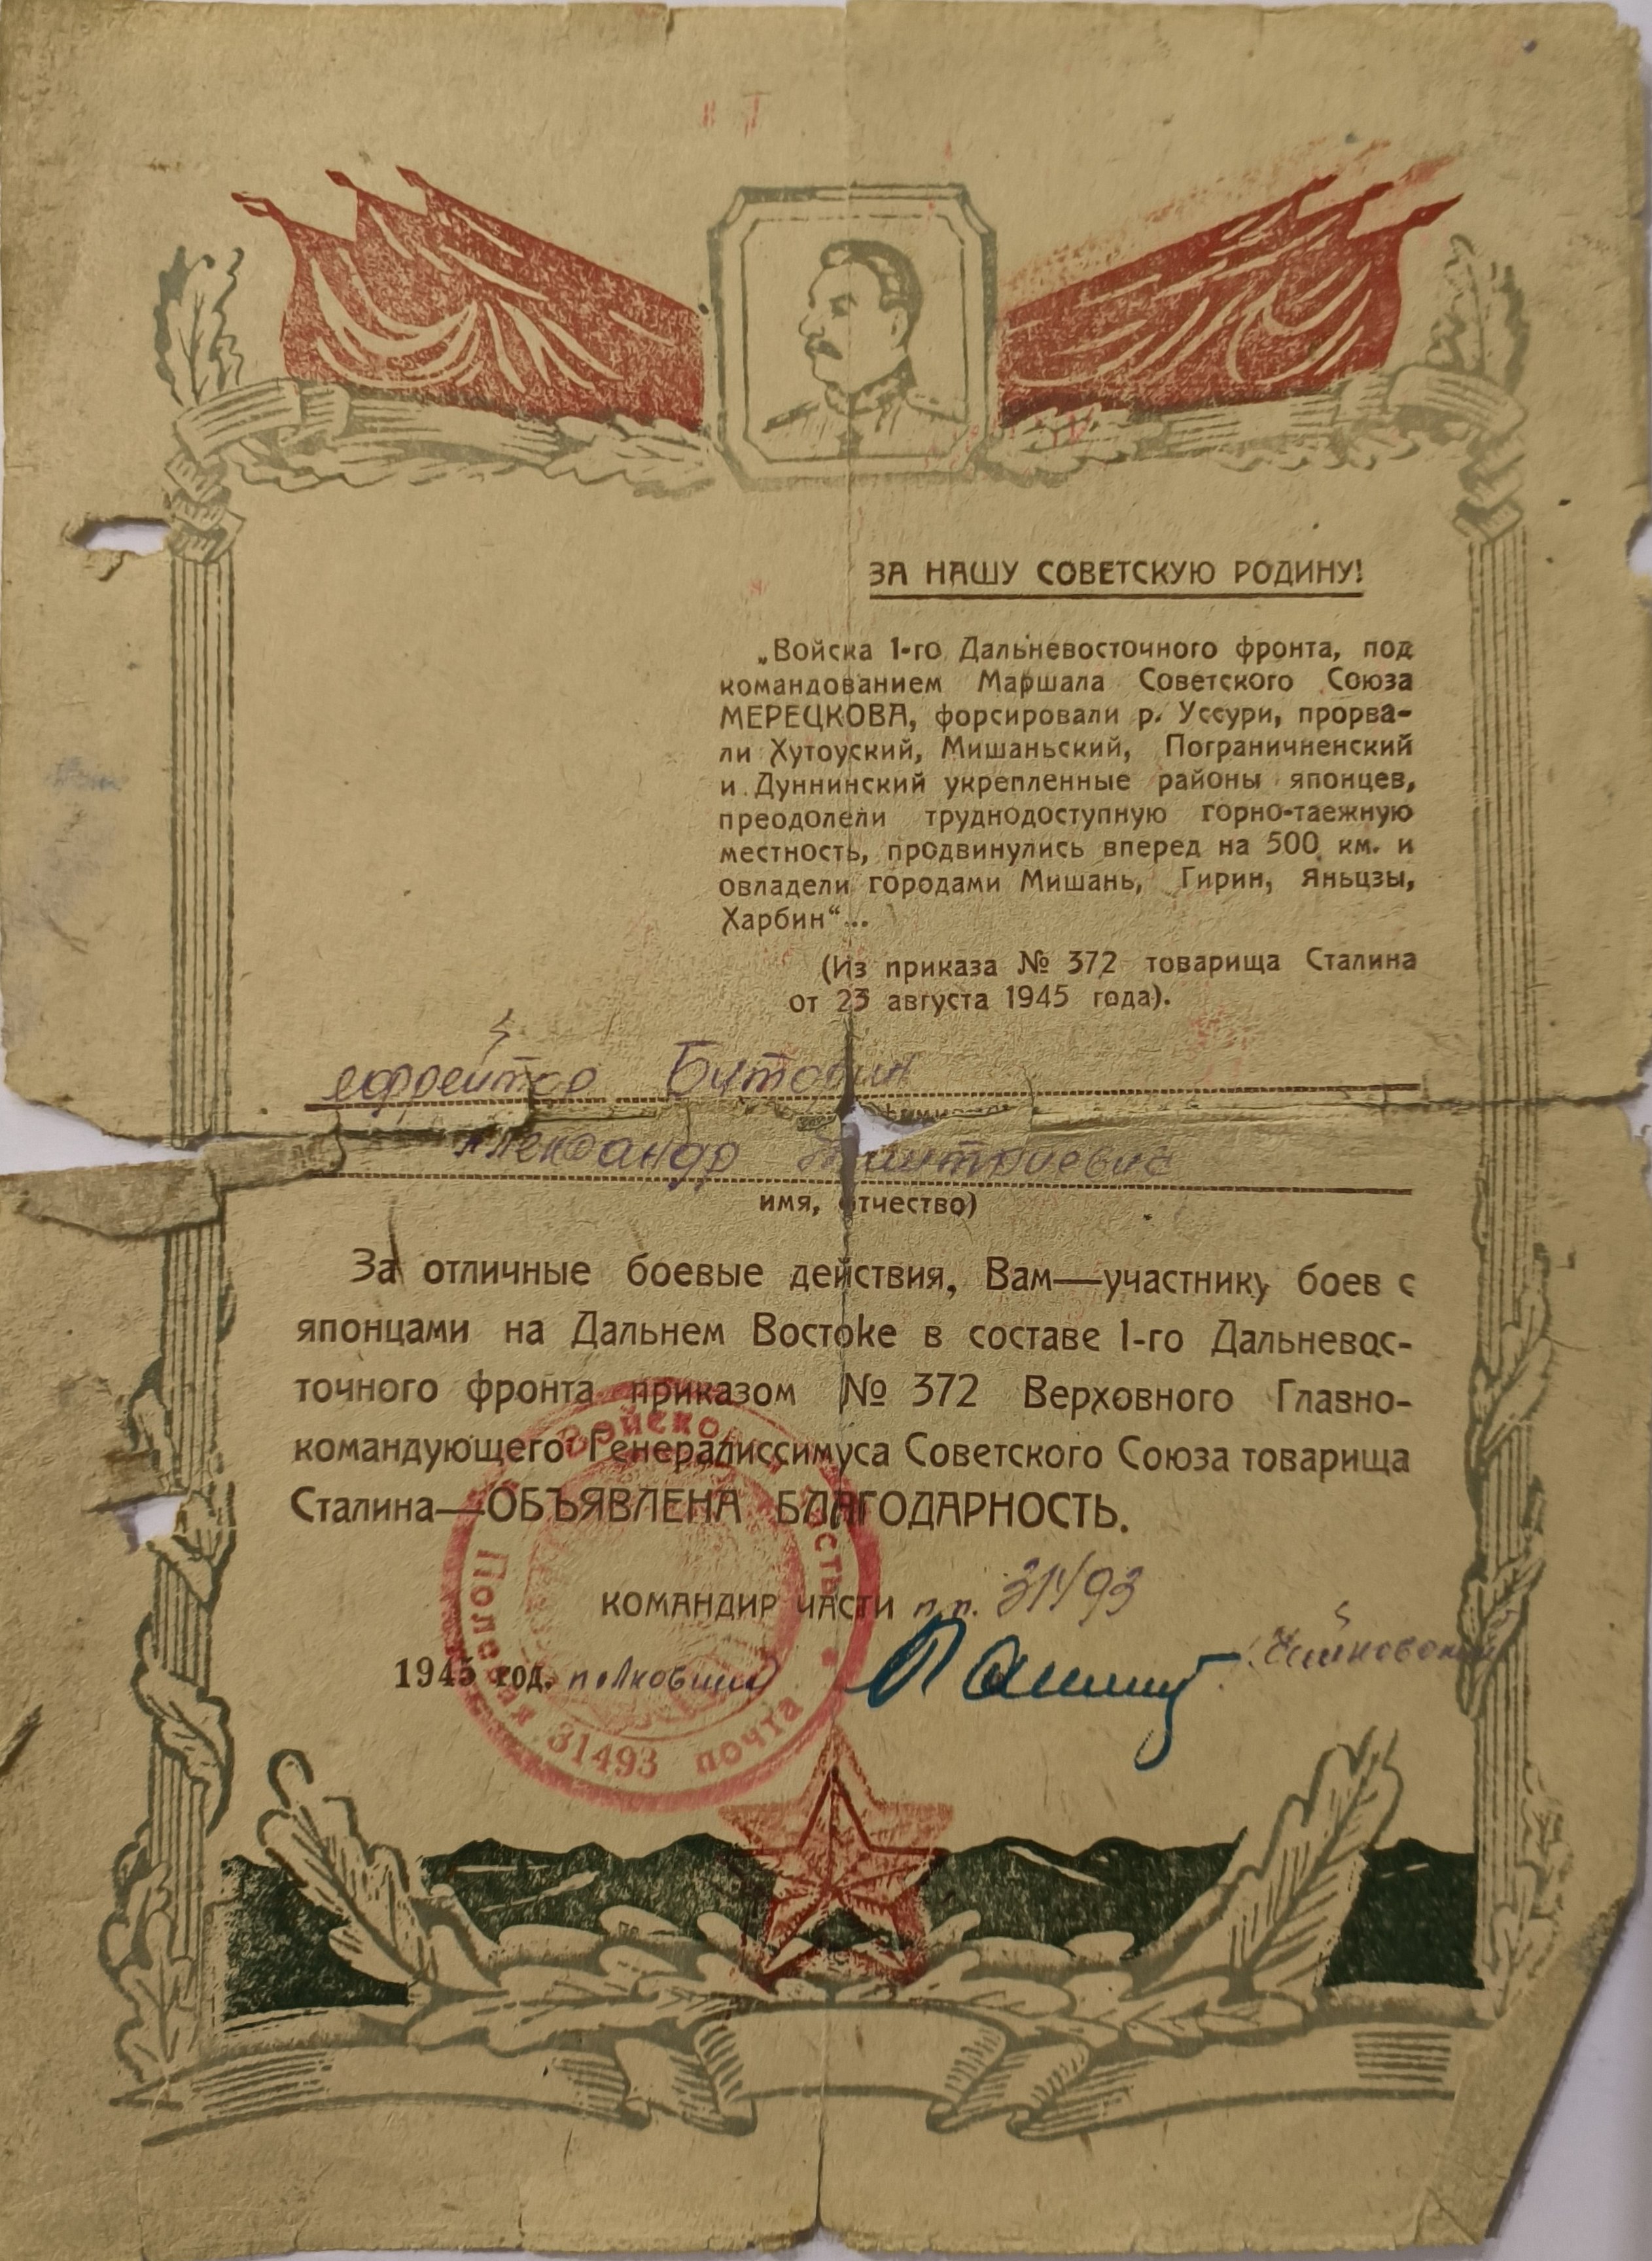 ЗА НАШУ СОВЕТСКУЮ РОДИНУ!
„Войска 1-го Дальневосточного фронта, под
командованием Маршала Советского Союза
МЕРЕЦКОВА, форсировали р. Уссури, прорва-
ли Хутоуский, Мишаньский, Пограничненский
и Дуннинский укрепленные районы японцев,
преодолели труднодоступную горно-таежную
местность, продвинулись вперед на 500 км. и
овладели городами Мишань, Гирин, Яньцзы,
Харбин“...
(Из приказа № 372 товарища Сталина
от 23 августа 1945 года).
ефрейтор
Александр Дмитриевич
имя, отчество)
За отличные боевые действия, Вам—участнику боев с
японцами на Дальнем Востоке в составе 1-го Дальневос-
точного фронта приказом № 372 Верховного Главно-
командующего Генералиссимуса Советского Союза товарища
Сталина—ОБЪЯВЛЕНА БЛАГОДАРНОСТЬ.
КОМАНДИР ЧАСТИ п.п. 31493
1945 год. полковник
Полевая 31493 почта